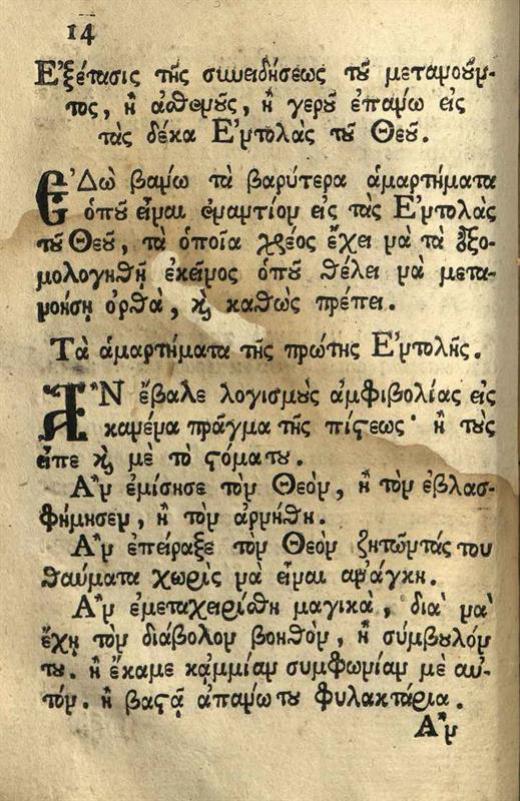 14
Ἐξέτασις τῆς συνειδήσεως τοῦ μετανοοῦν-
τος, ἢ ἀσθενοῦς, ἢ γεροῦ ἐπανω εἰς
τὰς δέκα Ἐντολὰς τοῦ Θεοῦ.
ἘΔὼ βανω τὰ βαρύτερα ἁμαρτήματα
ὁποῦ εἶναι ἐναντίον εἰς τὰς Ἐντολὰς
τοῦ Θεοῦ, τὰ ὁποῖα χρέος ἔχει νὰ τὰ ἐξο-
μολογηθῇ ἐκεῖνος ὁποῦ θέλει νὰ μετα-
νοήσῃ ὀρθὰ, καὶ καθὼς πρέπει.
Τὰ ἁμαρτήματα τῆς πρώτης Ἐντολῆς.
ἊΝ ἔβαλε λογισμοὺς ἀμφιβολίας εἰς
κανένα πρᾶγμα τῆς πίστεως· ἢ τοὺς
εἶπε καὶ μὲ τὸ στόματου.
Ἂν ἐμίσησε τὸν Θεὸν, ἢ τὸν ἐβλασ-
φήμησεν, ἢ τὸν ἀρνήθη.
Ἂν ἐπείραξε τὸν Θεὸν ζητῶντάς του
θαύματα χωρὶς νὰ εἶναι ἀνάγκη.
Ἂν ἐμεταχειρίσθη μαγικὰ, διὰ νὰ
ἔχῃ τὸν διάβολον βοηθὸν, ἢ σύμβουλόν
του. ἢ ἔκαμε καμμίαν συμφωνίαν μὲ αὐ-
τόν. ἢ βαστᾷ ἀπανωτου φυλακτάρια.
Ἂν